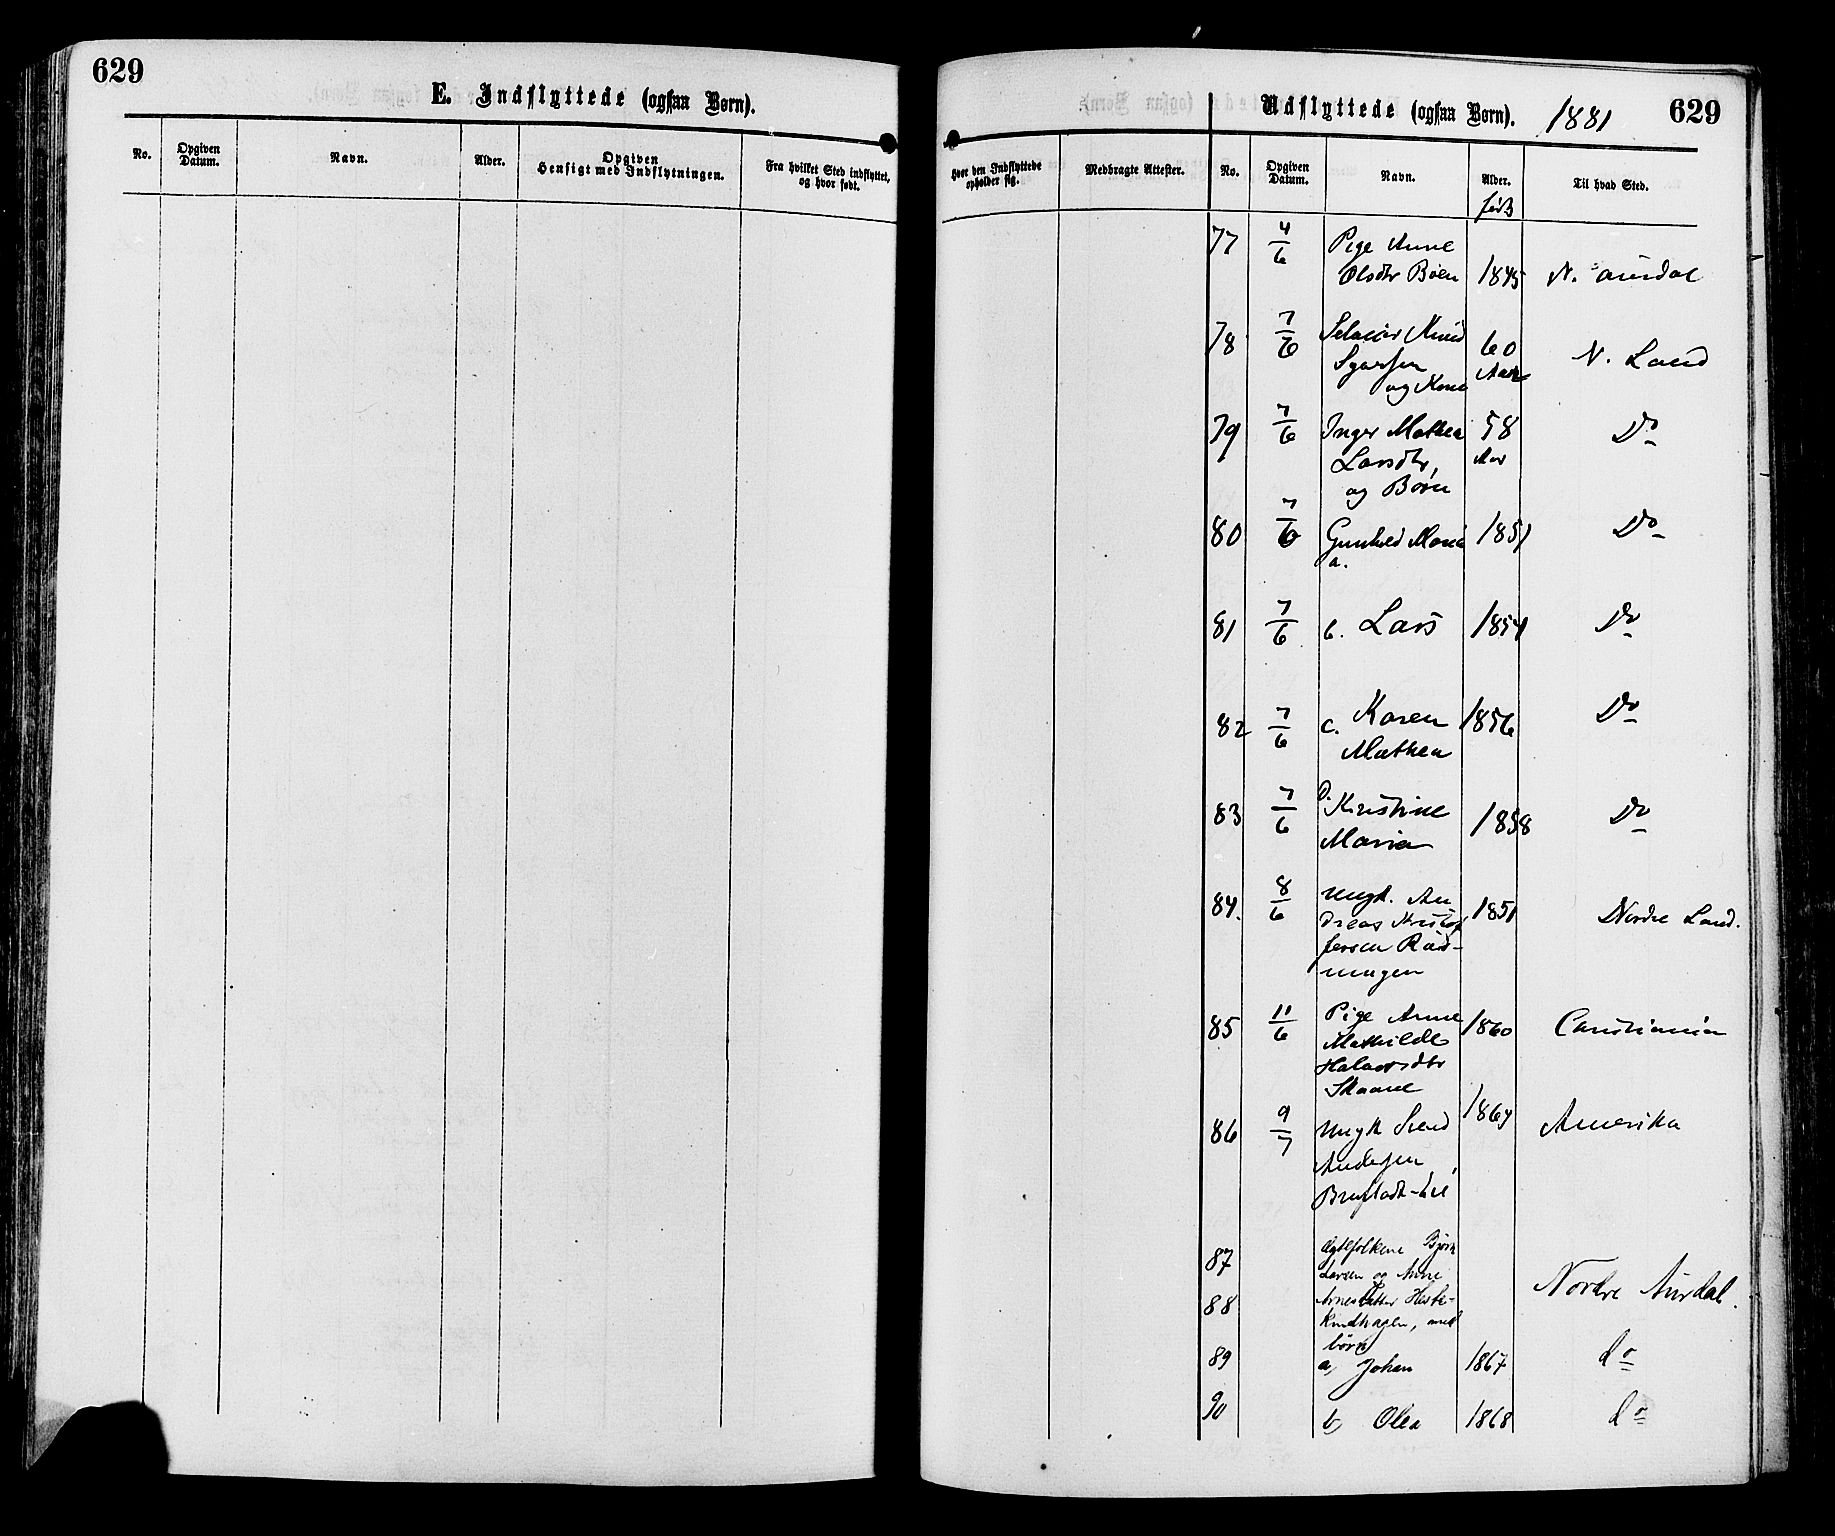 629
E. Indflyttede (ogsaa Børn).
No.
Opgiven Datum.
Navn.
Alder.
Opgiven Hensigt med Indflytningen.
Fra hvilket Sted indflyttet, og hvor født.
Hvor den Indflyttede opholder sig.
Medbragte Attester.
Udflyttede (ogsaa Børn). 1881
629
No.
Opgiven Datum.
Navn.
Alder.
født
Til hvad Sted.
77 4/6 Pige Anne
Olsdtr Bøen 1845 N. Aurdal
78 7/6 Knud 60
og Kone Aar N. Land
79 7/6 Inger Mathea 58 Do
Larsdtr, Aar
og Børn
80 7/6 Gunhild Maria 1851 Do
a.
81 7/6 b. Lars 1854 Do
82 7/6 c. Karen 1856 Do
Mathea
83 7/6 D. Kristine 1858 Do
Maria
84. 8/6 Ungk. An 1851 Nordre Land.
dreas Kristof
fersen
85 11/6 Pige Anne 1860 Christiania
Mathilde
Halvorsdtr
Skaane
86 9/7 Ungk Svend 1864 Amerika
Andersen
87 Ægtefolkene Bjørn
Larsen og Anne
88 Arnesdatter Heste-
kindhagen, med Nordre Aurdal.
børn
89 a, Johan 1867 do
90 b, Olea 1868 do